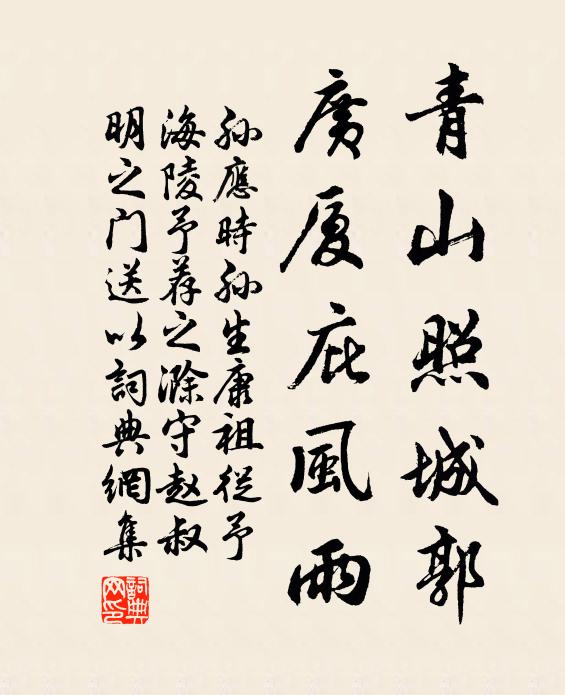 青山照城郭
廣厦庇風雨
孙應時孙生康祖從予
海陵予荐之滁守赵叔
明之门送以詞典網集
詞典網印